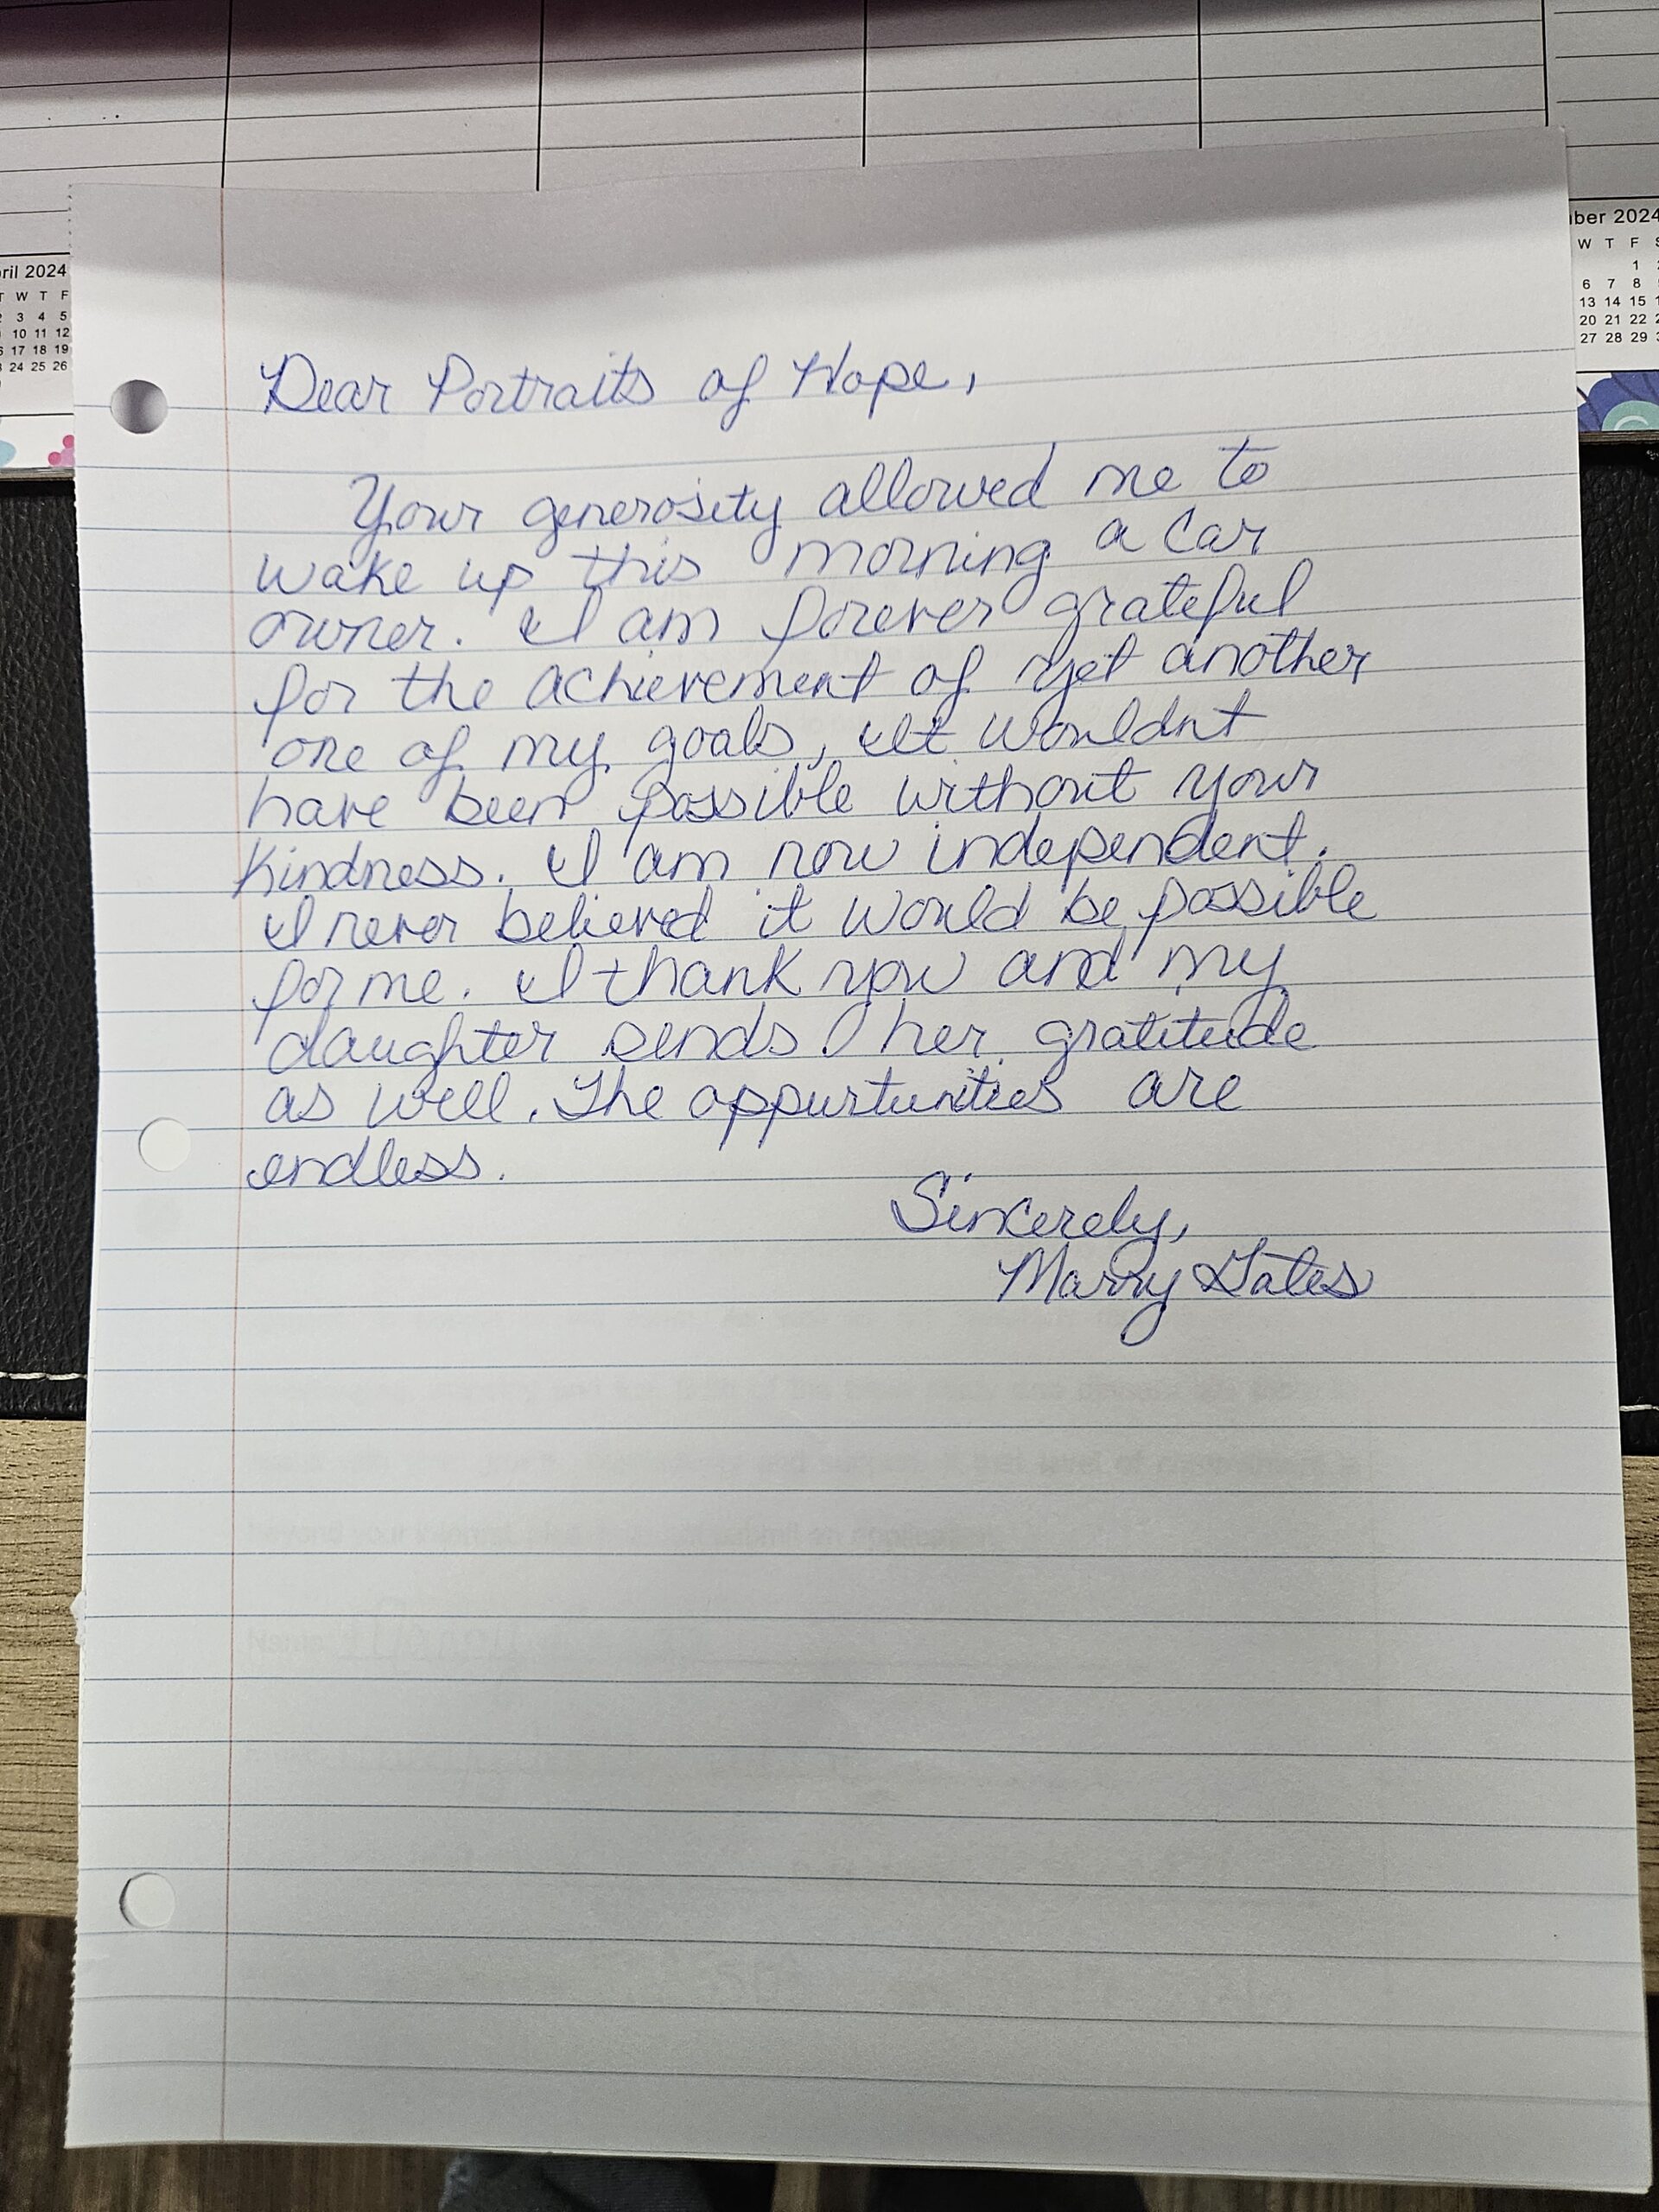 ril 2024
T W T F
2 3 4 5
10 11 12
17 18 19
24 25 26
ber 2024
W T F S
1
6 7 8
13 14 15
20 21 22
27 28 29
Dear Portraits of Hope,
Your generosity allowed me to
wake up this morning a car
owner. I am forever grateful
for the achievement of yet another
one of my goals, It wouldnt
have been possible without your
kindness. I am now independent.
I never believed it would be possible
for me. I thank you and my
daughter sends her gratitude
as well. The oppurtunities are
endless.
Sincerely,
Marry Gates